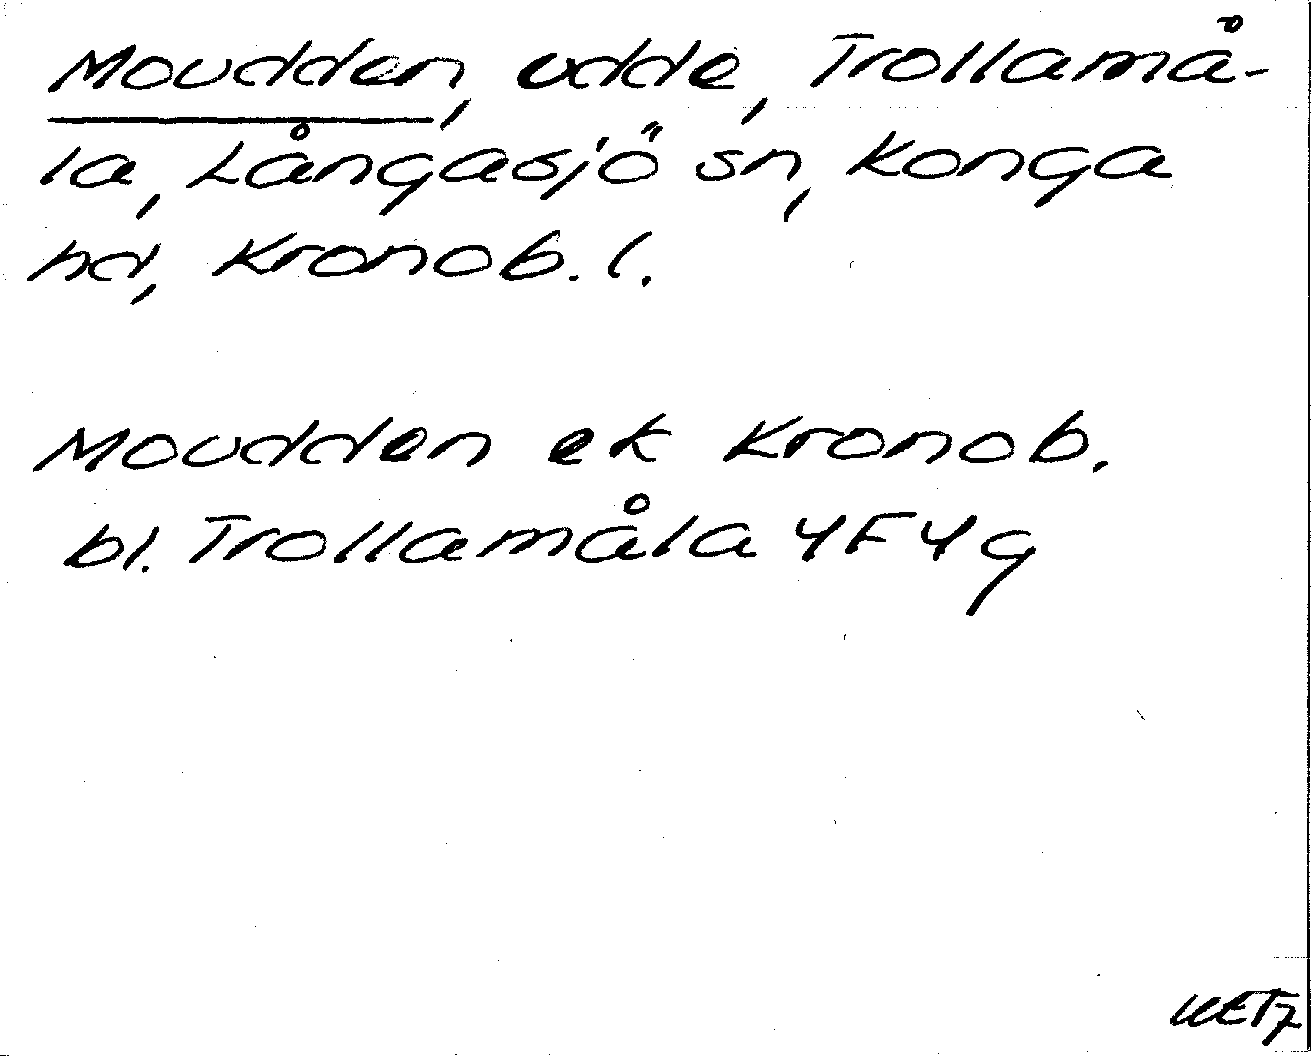 Moudden, udde, Trollamå-
la, Långasjö sn, Konga
hd, Kronob. l.
Moudden ek Kronob.
bl. Trollamåla 4F4g